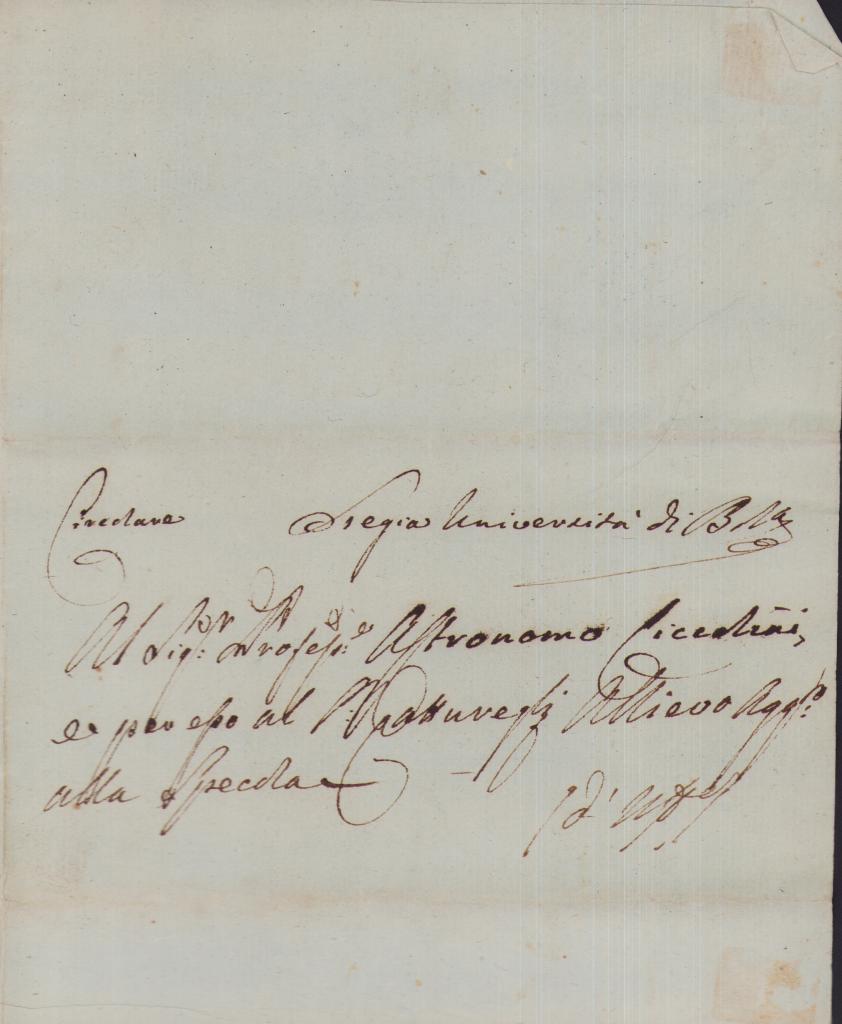 Circolare Regia Università di Bolª
Al Sigʳ: Professʳᵉ Astronomo Ciccolini,
e per esso al Sʳ: Catturegli Allievo Aggᵗᵒ:
alla Specola
d'Uffº